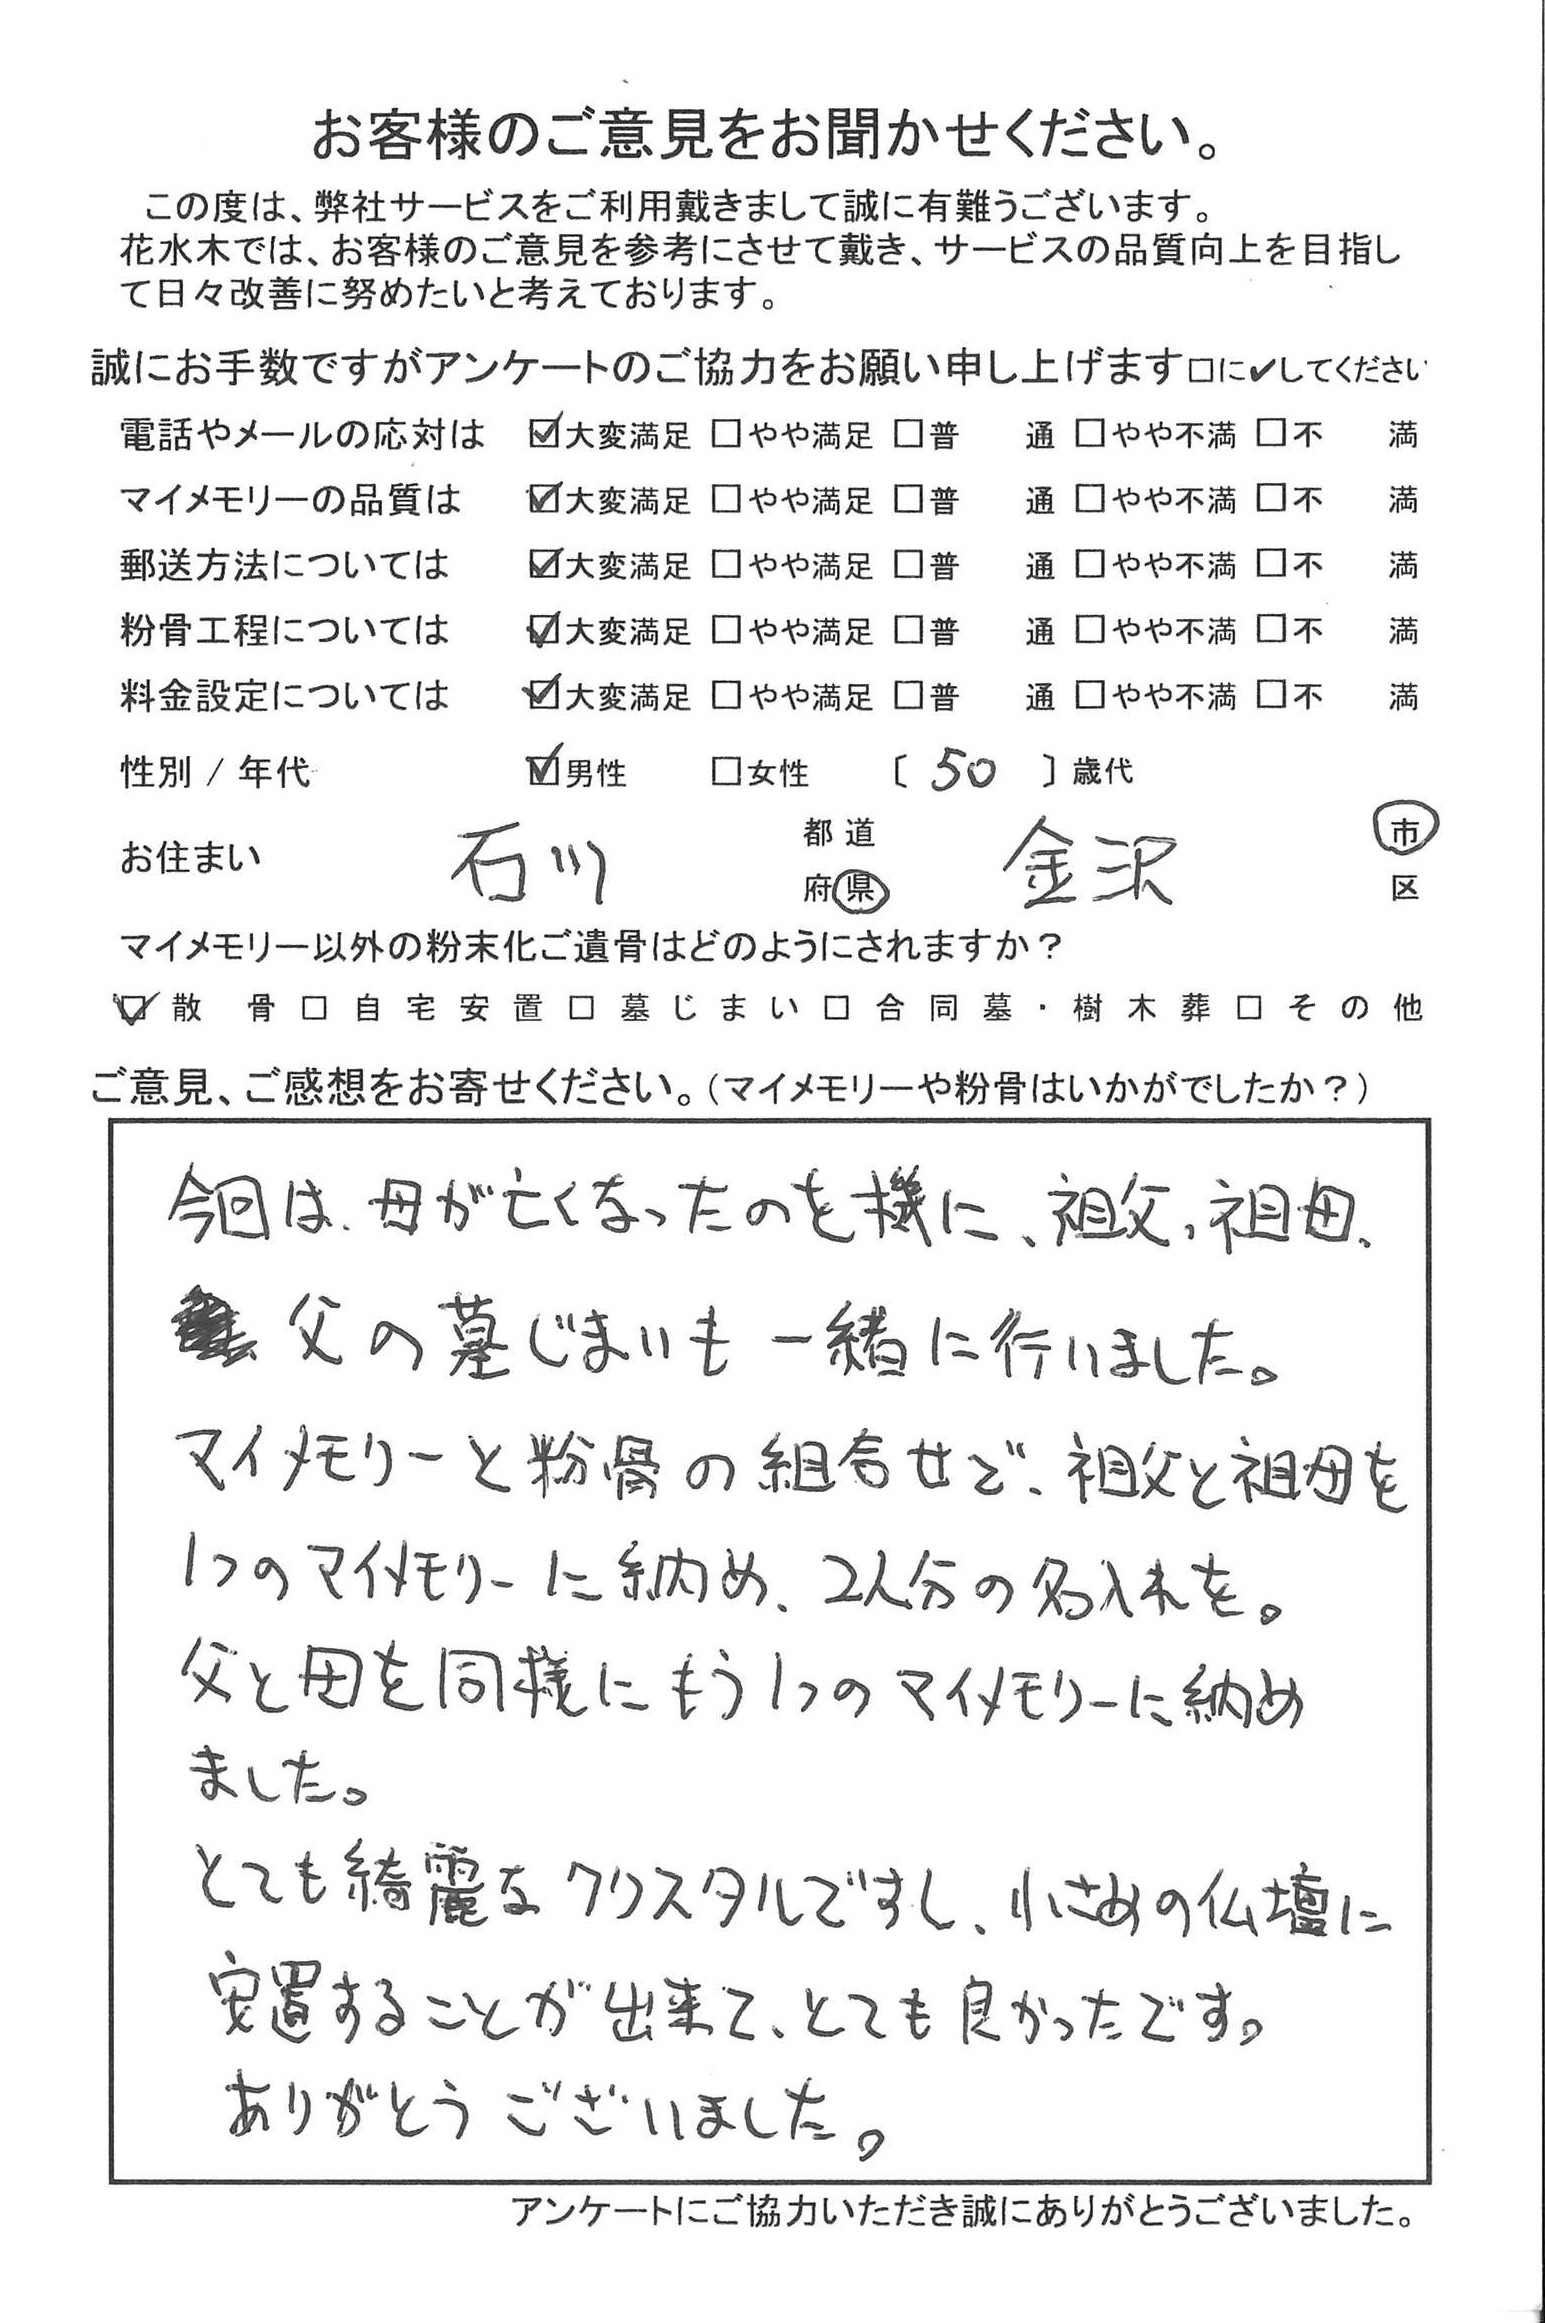 お客様のご意見をお聞かせください。
この度は、弊社サービスをご利用戴きまして誠に有難うございます。
花水木では、お客様のご意見を参考にさせて戴き、サービスの品質向上を目指し
て日々改善に努めたいと考えております。
誠にお手数ですがアンケートのご協力をお願い申し上げます□に✔してください
電話やメールの応対は ☑大変満足 □やや満足 □普 通 □やや不満 □不 満
マイメモリーの品質は ☑大変満足 □やや満足 □普 通 □やや不満 □不 満
郵送方法については ☑大変満足 □やや満足 □普 通 □やや不満 □不 満
粉骨工程については ☑大変満足 □やや満足 □普 通 □やや不満 □不 満
料金設定については ☑大変満足 □やや満足 □普 通 □やや不満 □不 満
性別 / 年代 ☑男性 □女性 〔 50 〕歳代
お住まい 石川 都道府県 金沢 市区
マイメモリー以外の粉末化ご遺骨はどのようにされますか？
☑散 骨 □自宅安置 □墓じまい □合同墓・樹木葬 □その他
ご意見、ご感想をお寄せください。（マイメモリーや粉骨はいかがでしたか？）
今回は、母が亡くなったのを機に、祖父、祖母、
父の墓じまいも一緒に行いました。
マイメモリーと粉骨の組合せで、祖父と祖母を
1つのマイメモリーに納め、2人分の名入れを。
父と母を同様にもう1つのマイメモリーに納め
ました。
とても綺麗なクリスタルですし、小さめの仏壇に
安置することが出来て、とても良かったです。
ありがとうございました。
アンケートにご協力いただき誠にありがとうございました。